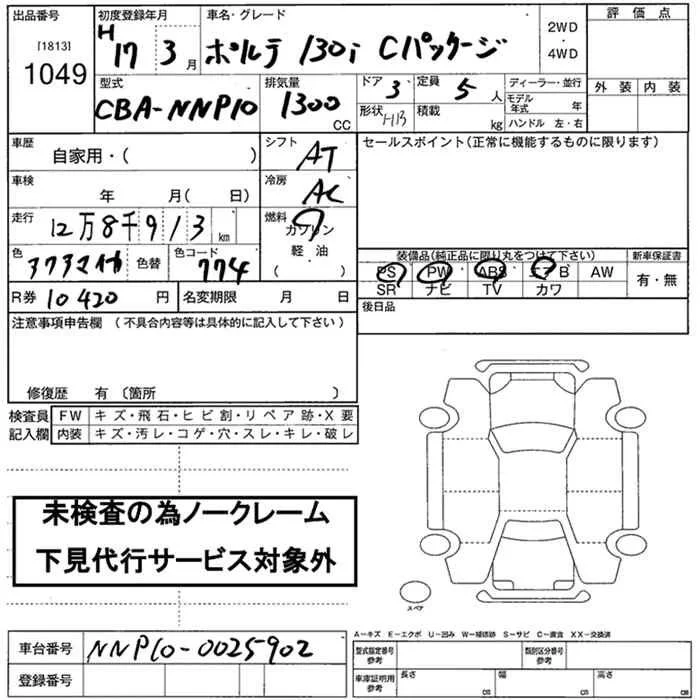 出品番号 初度登録年月 車名・グレード 2WD 評価点
[1813] H17 3月 ポルテ 130i Cパッケージ ・
1049 4WD
型式 排気量 ドア 3 定員 5人 ディーラー・並行 外装 内装
CBA-NNP10 1300CC 形状 H13 積載 kg モデル年式 年
ハンドル 左・右
車歴 シフト セールスポイント(正常に機能するものに限ります)
自家用・( ) AT
車検 冷房
年 月(日) AC
走行 燃料
12万8千913km ガソリン
色 色替 色コード 軽・油 装備品(純正品に限り丸をつけて下さい) 新車保証書
774 ( ) PS PW ABS エアB AW 有・無
SR ナビ TV カワ
R券 10420円 名変期限 月 日 後日品
注意事項申告欄 (不具合内容等は具体的に記入して下さい)
修復歴 有 〔箇所 〕
検査員 FW キズ・飛石・ヒビ割・リペア跡・X要
記入欄 内装 キズ・汚レ・コゲ・穴・スレ・キレ・破レ
未検査の為ノークレーム
下見代行サービス対象外
スペア
A−キズ E−エクボ U−凹み W−補修跡 S−サビ C−腐食 XX−交換済
車台番号 NNP10-0025902 型式指定番号 参考 類別区分番号 参考
登録番号 車庫証明用 参考 長さ cm 幅 cm 高さ cm